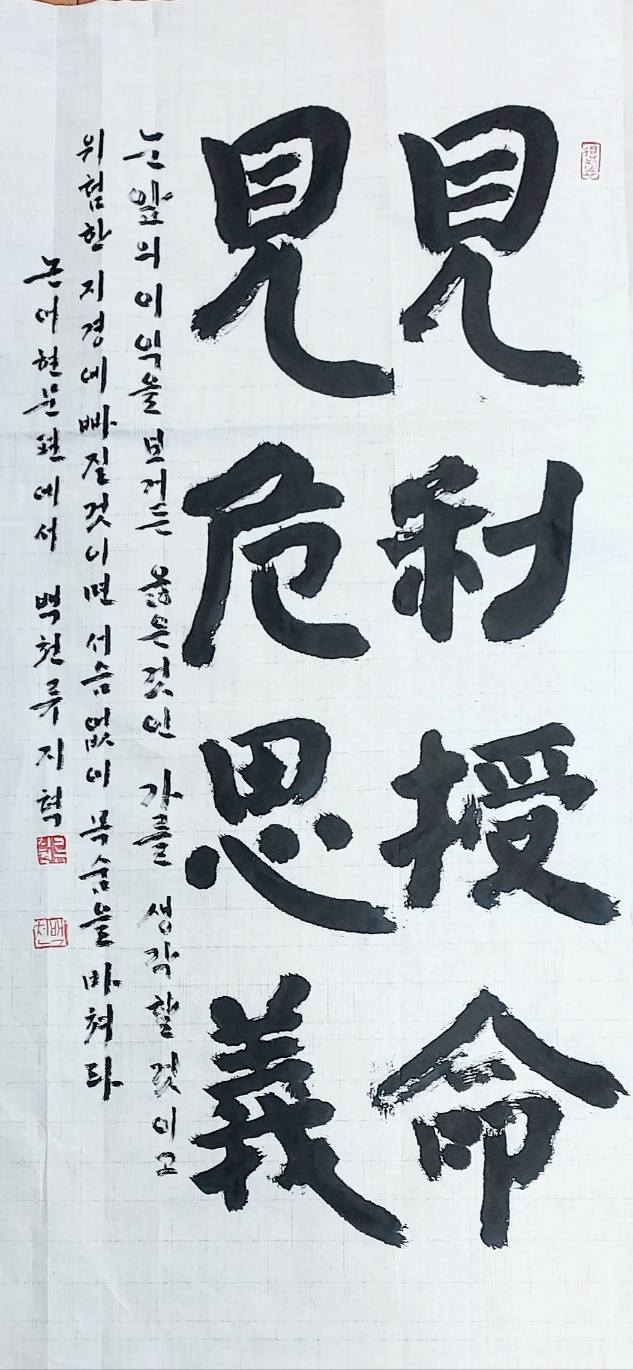 見利授命
見危思義
눈앞의 이익을 보거든 옳은것인 가를 생각할 것이고
위험한 지경에 빠질것이면 서슴없이 목숨을 바쳐라
논어헌문편에서 백천 류지혁